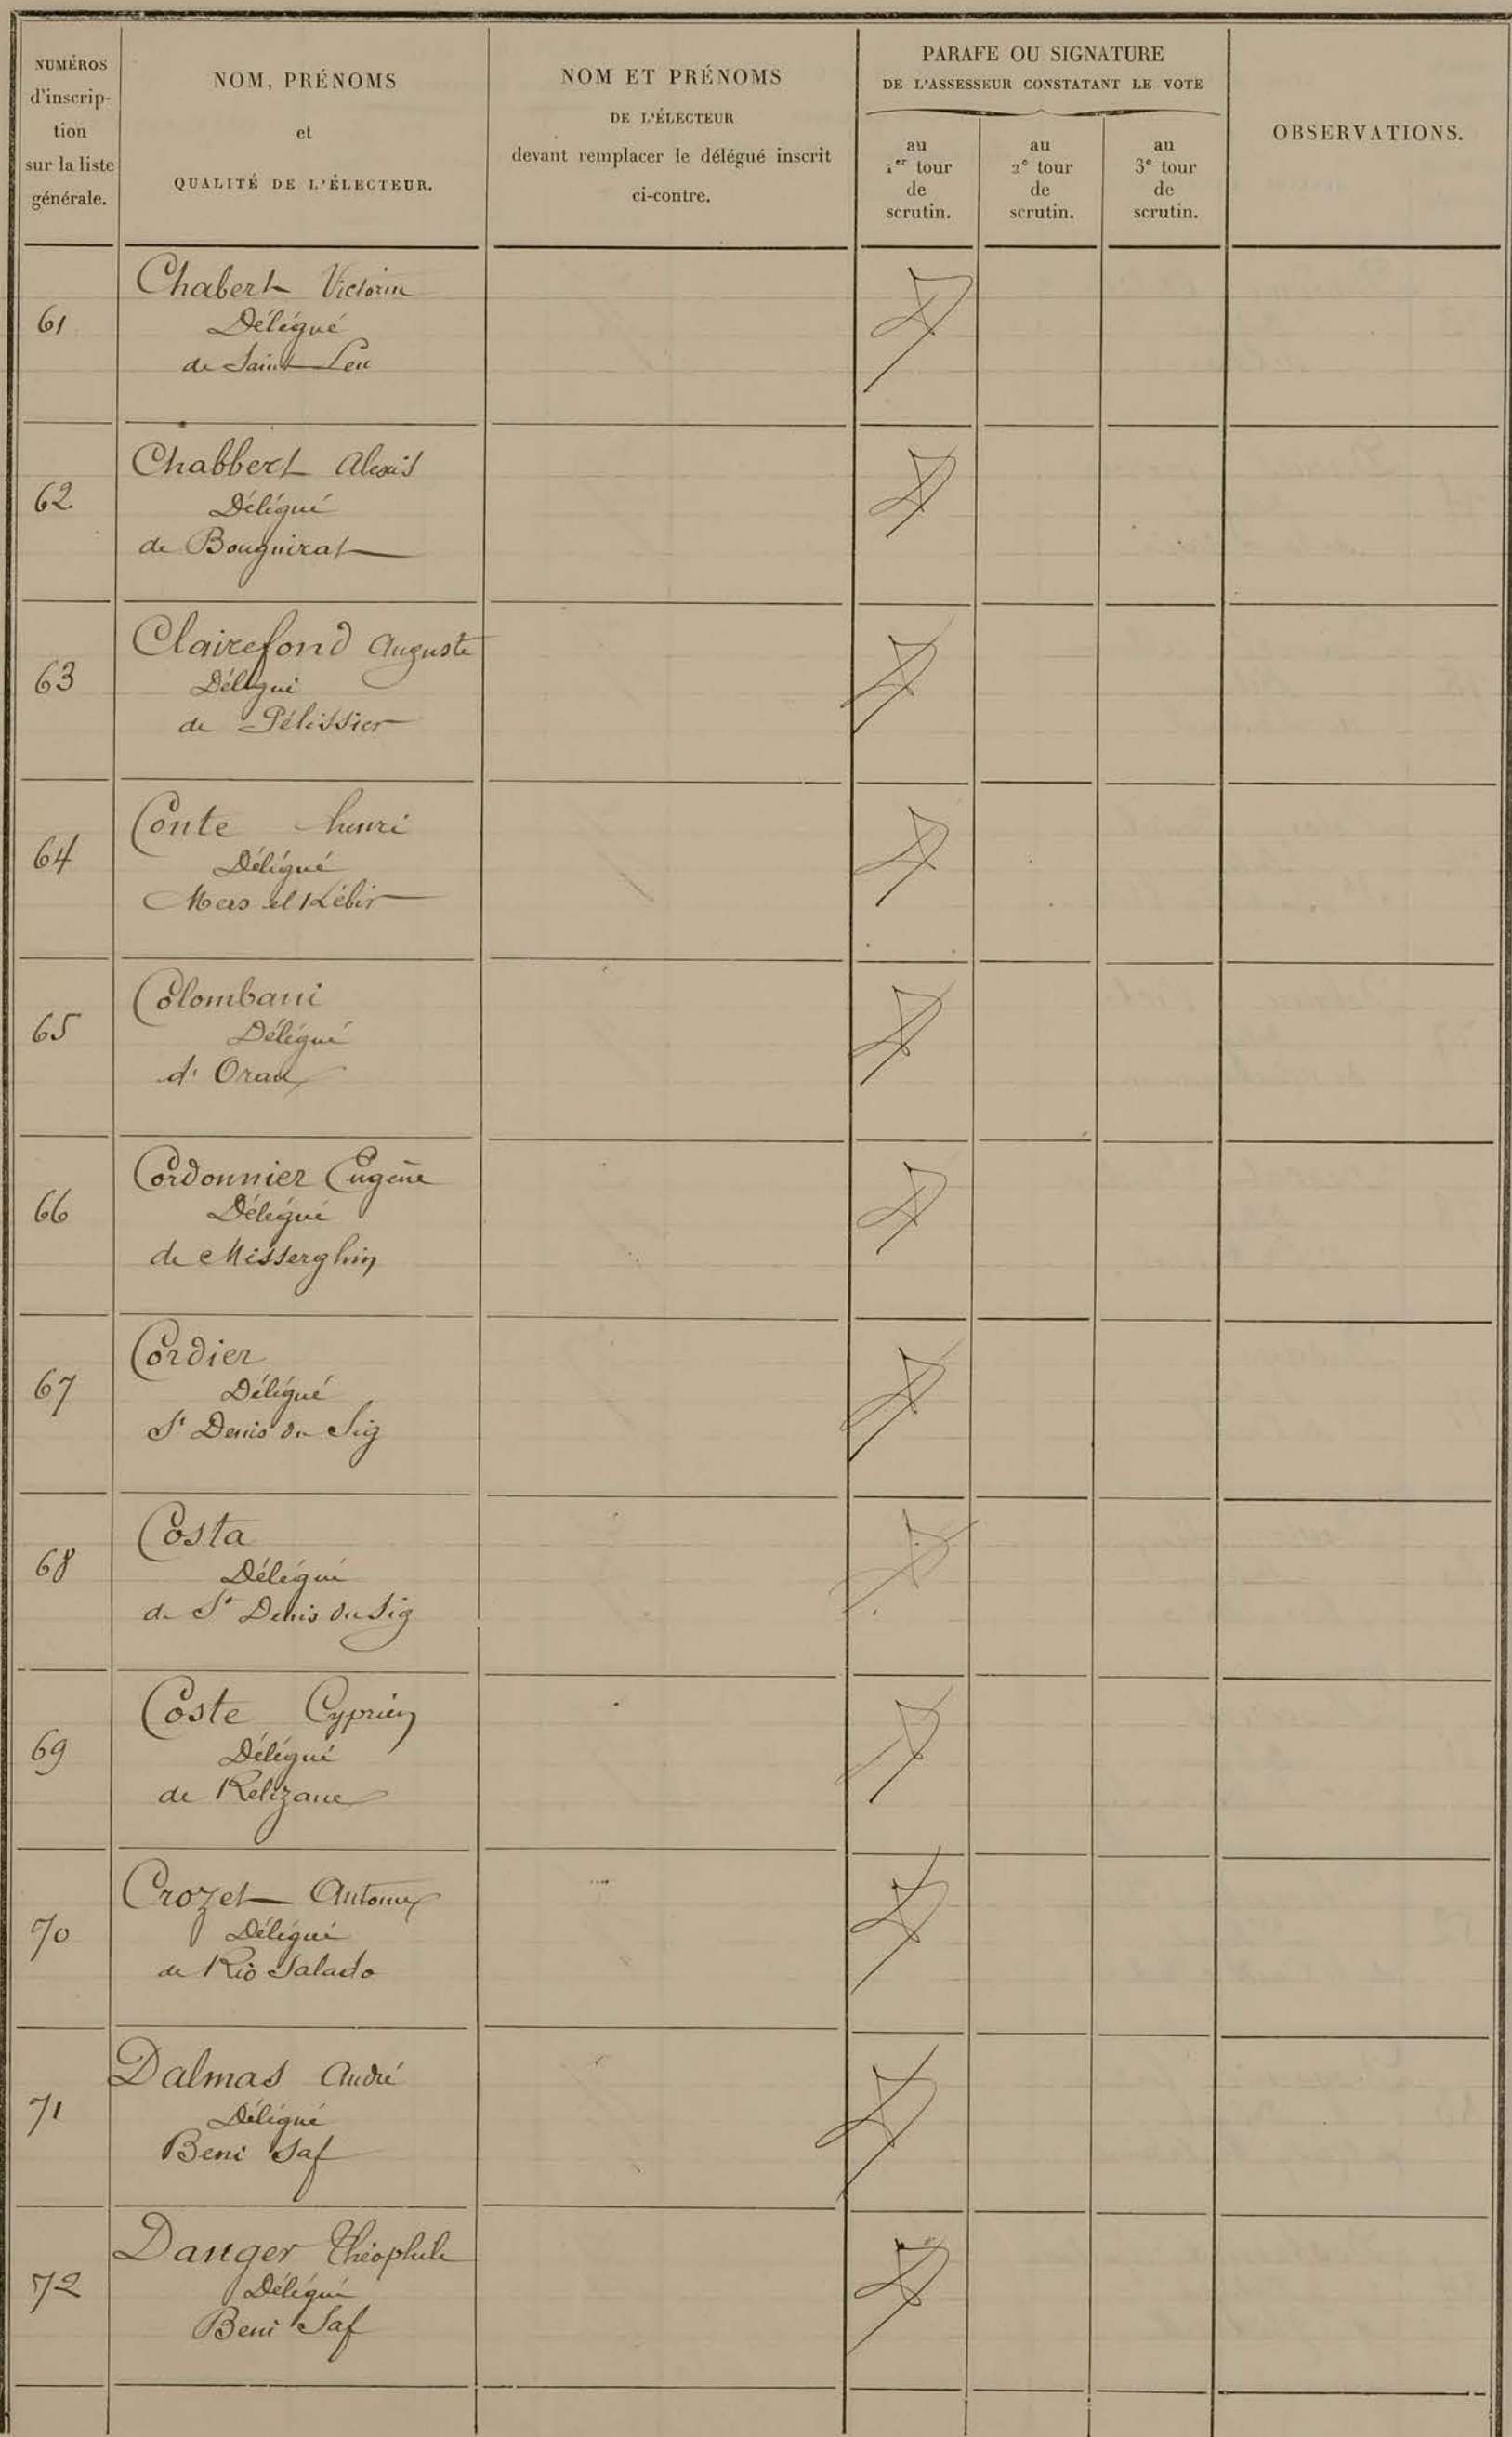 NUMÉROS
d'inscrip-
tion
sur la liste
générale.
NOM, PRÉNOMS
et
QUALITÉ DE L'ÉLECTEUR.
NOM ET PRÉNOMS
DE L'ÉLECTEUR
devant remplacer le délégué inscrit
ci-contre.
PARAFE OU SIGNATURE
DE L'ASSESSEUR CONSTATANT LE VOTE
au
1er tour
de
scrutin.
au
2e tour
de
scrutin.
au
3e tour
de
scrutin.
OBSERVATIONS.
61
Chabert Victorin
Délégué
de Saint Leu
62
Chabbert Alexis
Délégué
de Bouguirat
63
Clairefond Auguste
Délégué
de Pélissier
64
Conte henri
Délégué
Mers el Kébir
65
Colombani
Délégué
d'Oran
66
Cordonnier Eugène
Délégué
de Misserghin
67
Cordier
Délégué
St Denis du Sig
68
Costa
Délégué
de St Denis du Sig
69
Coste Cyprien
Délégué
de Relizane
70
Crozet Antoine
Délégué
de Rio Salado
71
Dalmas André
Délégué
Beni Saf
72
Danger Théophile
Délégué
Beni Saf